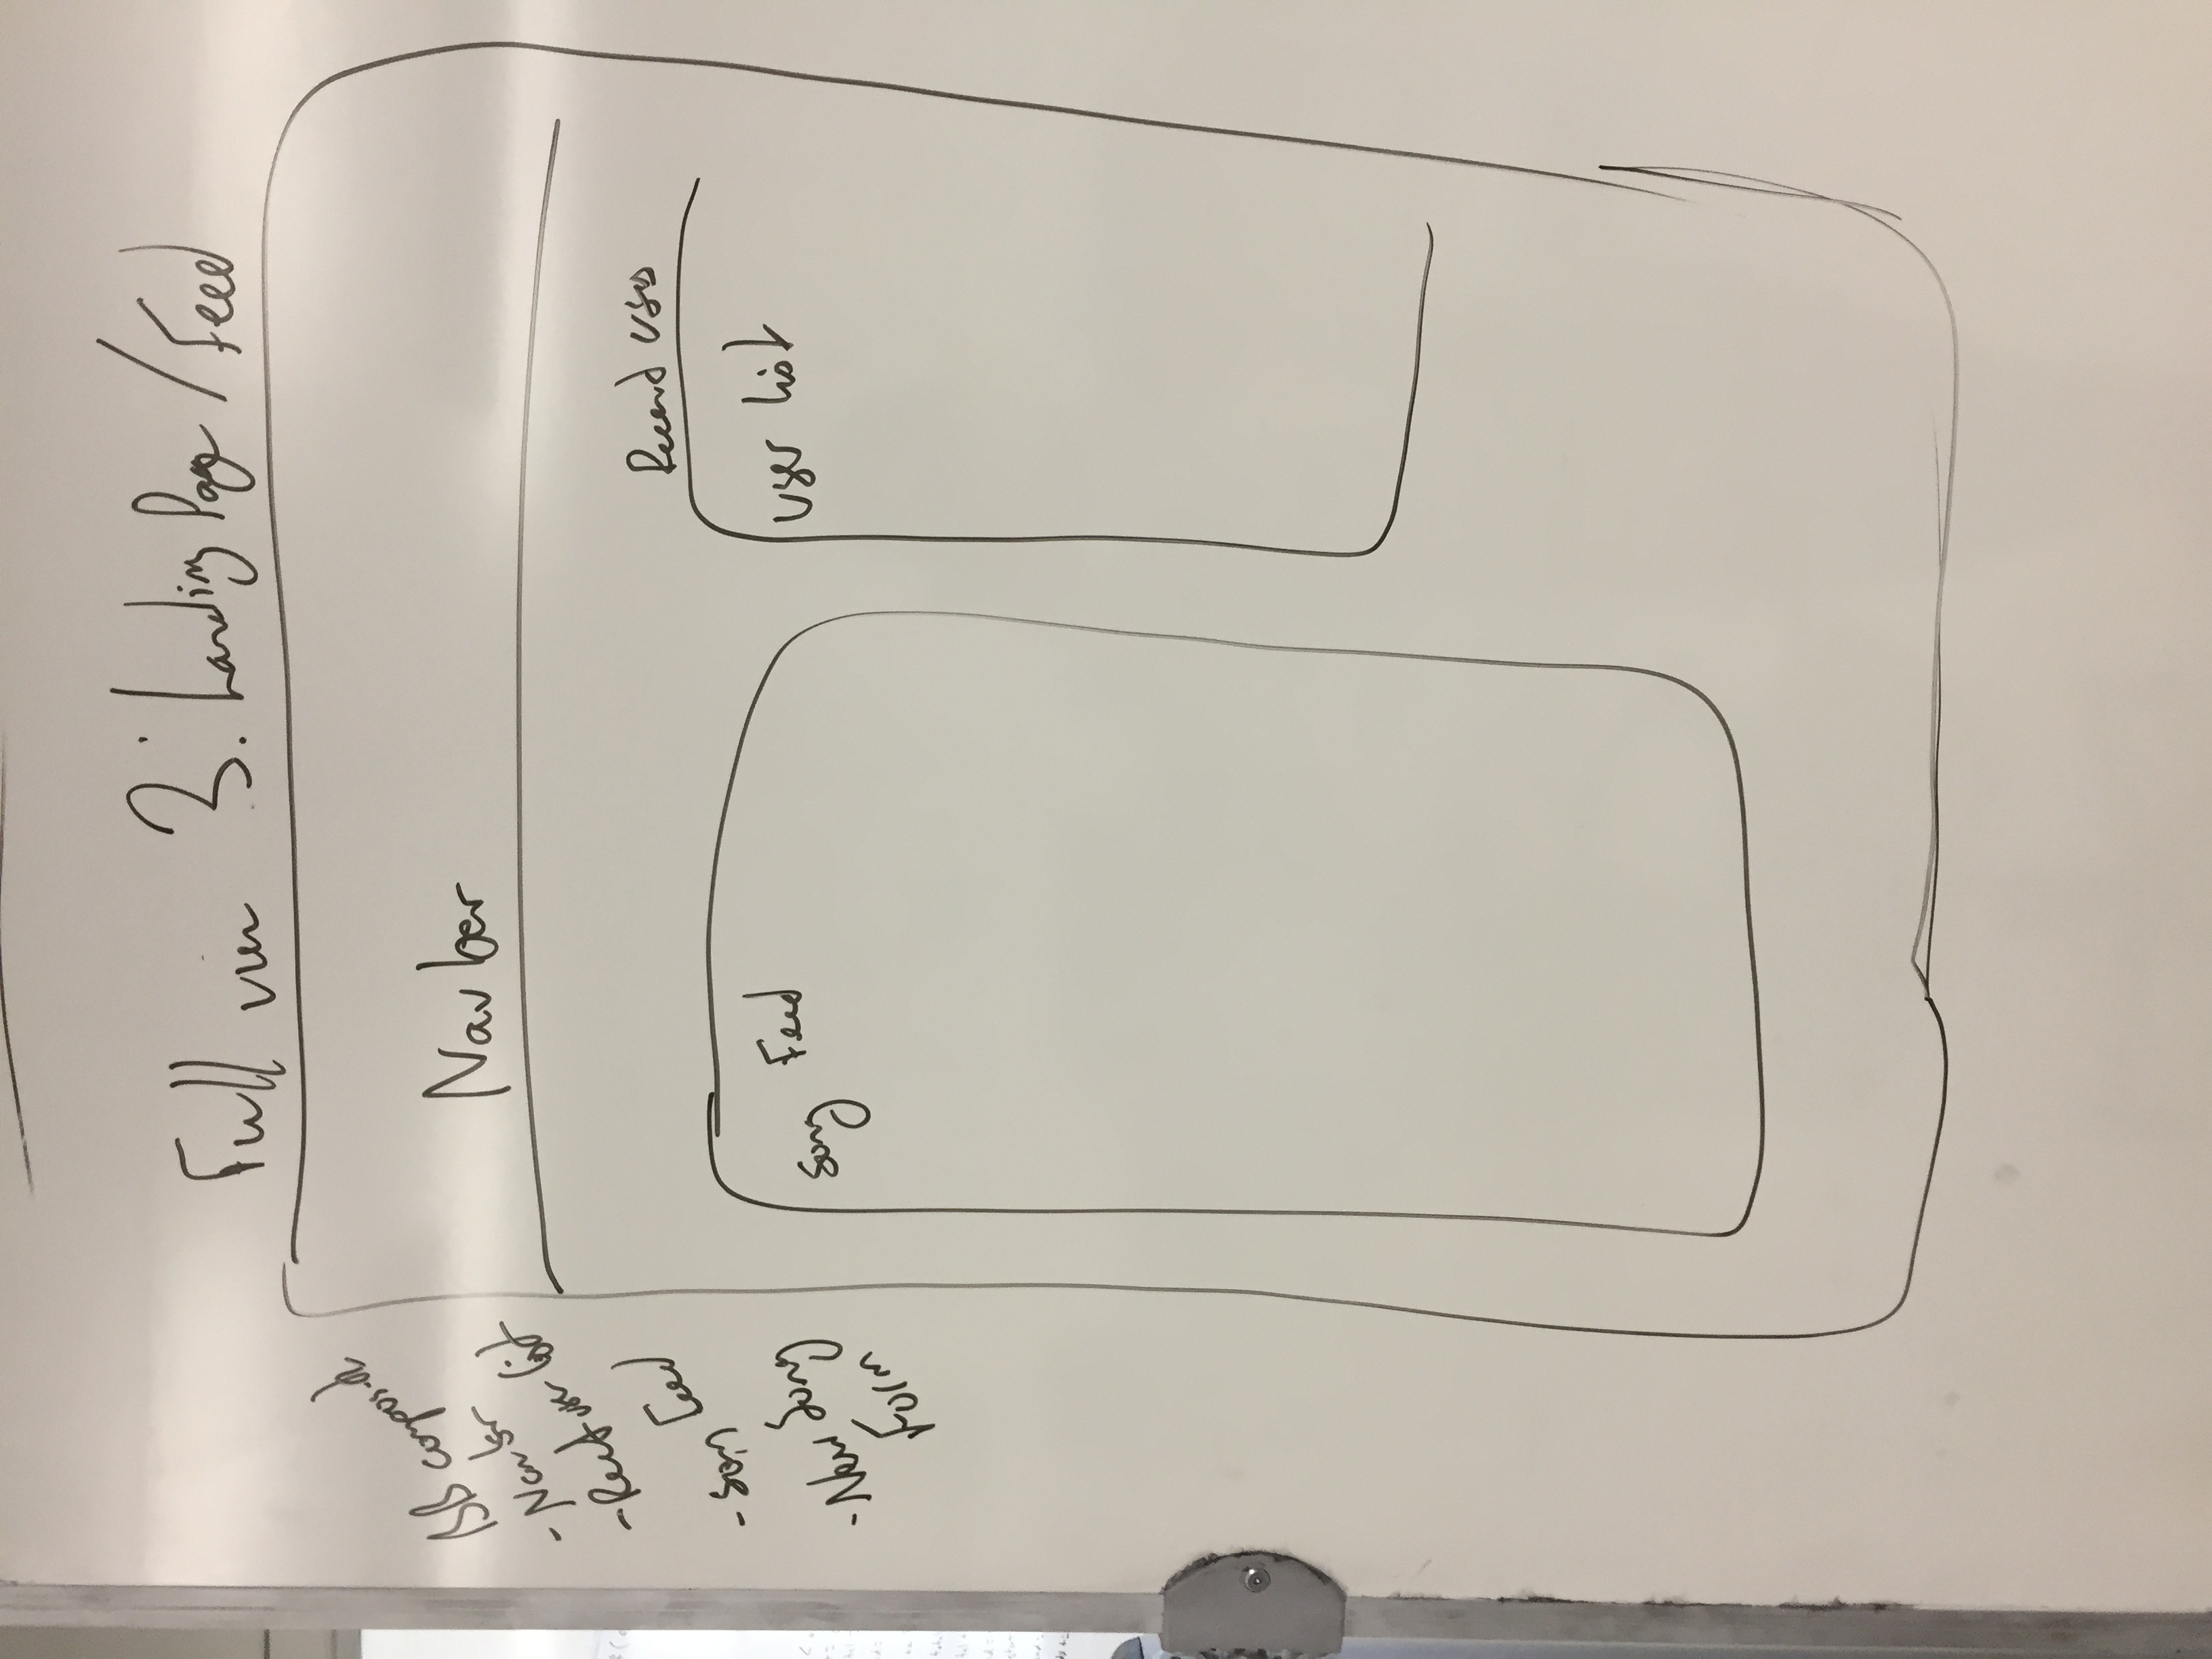 Full view 3: Landing Page / Feed
BB composite
- Navbar
- Recent user list
- Song Feed
- New Song
Form
Navbar
Recend users
User list
Song Feed